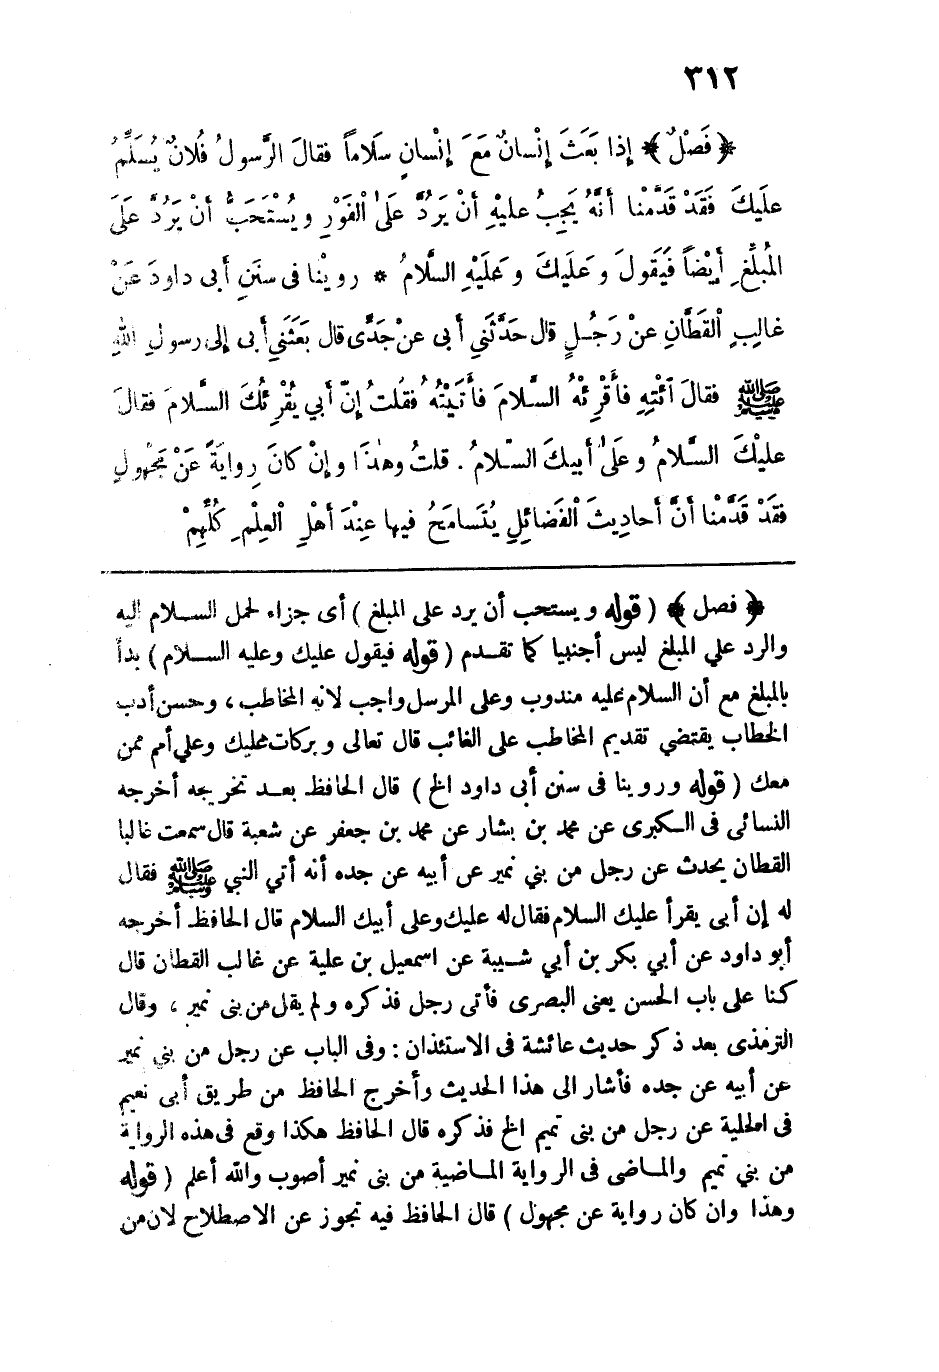 ٣١٢
﴿ فَصْلٌ ﴾ إذا بَعَثَ إنْسانٌ مَعَ إنْسانٍ سلَاماً فقالَ الرَّسولُ فُلانٌ يُسَلِّمُ
علَيكَ فَقَدْ قدَّمْنا أنَّهُ يَجِبُ عليهِ أنْ يَرُدَّ علَى الْفَوْرِ ويُسْتَحَبُّ أنْ يَرُدَّ علَى
المُبلِّغِ أيْضاً فَيَقولَ وعَلَيكَ وعَلَيْهِ السَّلامُ * روينا فى سننِ أبى داودَ عَنْ
غالِبٍ الْقَطَّانِ عنْ رَجُلٍ قال حَدَّثَنِي أبى عنْ جَدِّى قال بَعَثَنِي أبى إلى رسولِ اللهِ
ﷺ فقالَ ائْتِهِ فأَقْرِئْهُ السَّلامَ فأَتَيْتُهُ فقُلتُ إنّ أبي يُقْرِئُكَ السَّلامَ فقالَ
عليْكَ السَّلامُ وعلَى أبيكَ السّلامُ . قلتُ وهذَا وإنْ كانَ رِوايةً عَنْ مَجْهُولٍ
فقَدْ قدَّمْنا أنَّ أحاديثَ الْفَضائِلِ يُتَسامَحُ فيها عِنْدَ أهْلِ الْعِلْمِ كُلِّهِمْ
﴿ فصل ﴾ ( قوله ويستحب أن يرد على المبلغ ) أى جزاء لحمل السلام اليه
والرد علي المبلغ ليس أجنبيا كما تقدم ( قوله فيقول عليك وعليه السلام ) بدأ
بالمبلغ مع أن السلام عليه مندوب وعلى المرسل واجب لانه المخاطب ، وحسن أدب
الخطاب يقتضي تقديم المخاطب على الغائب قال تعالى وبركات عليك وعلي أمم ممن
معك ( قوله وروينا فى سنن أبى داود الخ ) قال الحافظ بعد تخريجه أخرجه
النسائى فى الكبرى عن محمد بن بشار عن محمد بن جعفر عن شعبة قال سمعت غالبا
القطان يحدث عن رجل من بني نمير عن أبيه عن جده أنه أتي النبي ﷺ فقال
له إن أبى يقرأ عليك السلام فقال له عليك وعلى أبيك السلام قال الحافظ أخرجه
أبو داود عن أبي بكر بن أبي شيبة عن اسمعيل بن علية عن غالب القطان قال
كنا على باب الحسن يعنى البصرى فأتى رجل فذكره ولم يقل من بنى نمير ، وقال
الترمذى بعد ذكر حديث عائشة فى الاستئذان : وفى الباب عن رجل من بني نمير
عن أبيه عن جده فأشار الى هذا الحديث وأخرج الحافظ من طريق أبى نعيم
فى الحلية عن رجل من بنى تميم الخ فذكره قال الحافظ هكذا وقع فى هذه الرواية
من بني تميم والماضى فى الرواية الماضية من بنى نمير أصوب والله أعلم ( قوله
وهذا وان كان رواية عن مجهول ) قال الحافظ فيه تجوز عن الاصطلاح لان من